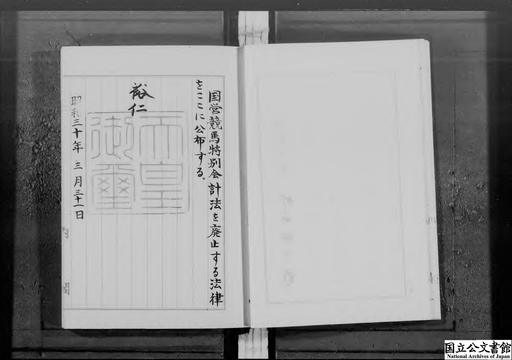 国営競馬特別会計法を廃止する法律
をここに公布する。
裕仁
天皇
御璽
昭和三十年三月三十一日
国立公文書館
National Archives of Japan